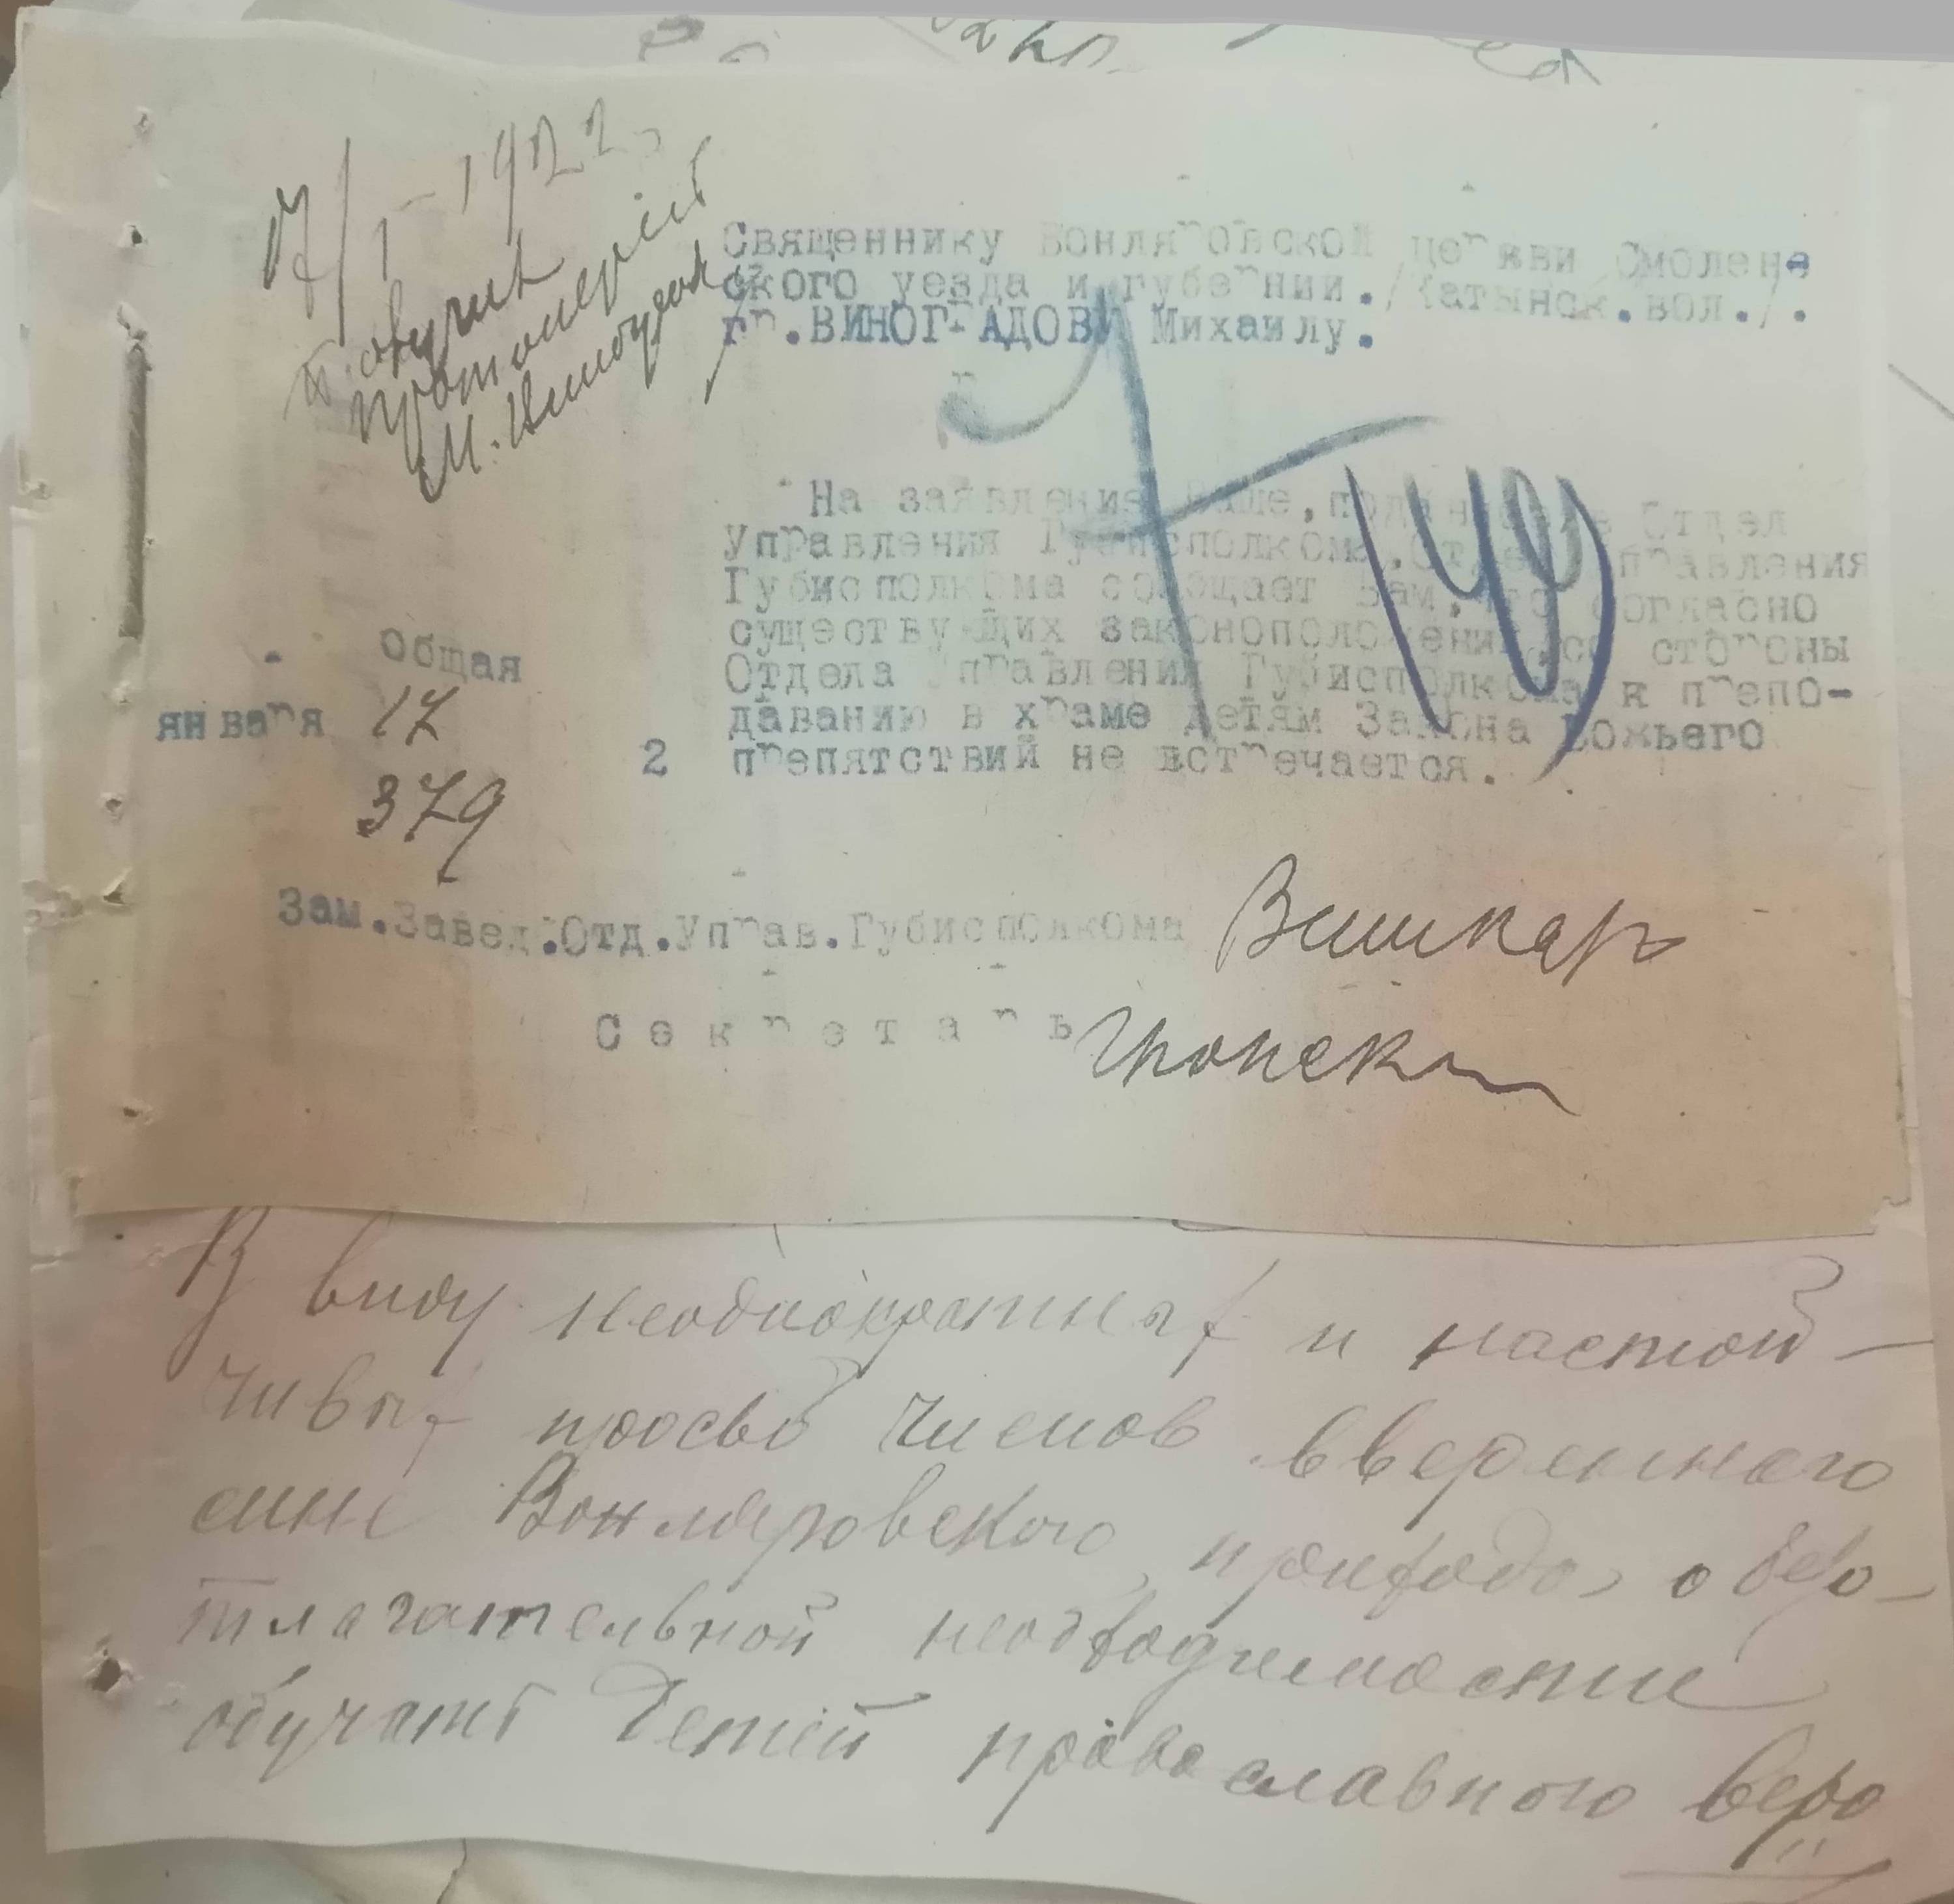 17/I - 1922
Получил
протоиерей
М. Виноградов
Священнику Вонляровской церкви Смоленс
ского уезда и губернии./Катынск.вол./.
гр.ВИНОГРАДОВУ Михаилу.
На заявление Ваше, поданное в Отдел
Управления Губисполкома, Отдел Управления
Губисполкома сообщает Вам, что согласно
существующих законоположений, со стороны
Отдела Управления Губисполкома к препо-
даванию в храме детям Закона Божьего
2 препятствий не встречается.
Общая
января 17
379
Зам.Завед.Отд.Управ.Губисполкома
Секретарь
В виду неоднократных и настой-
чивых просьб членов вверенного
мне Вонляровского прихода, о безо-
тлагательной необходимости
обучать детей православного веро